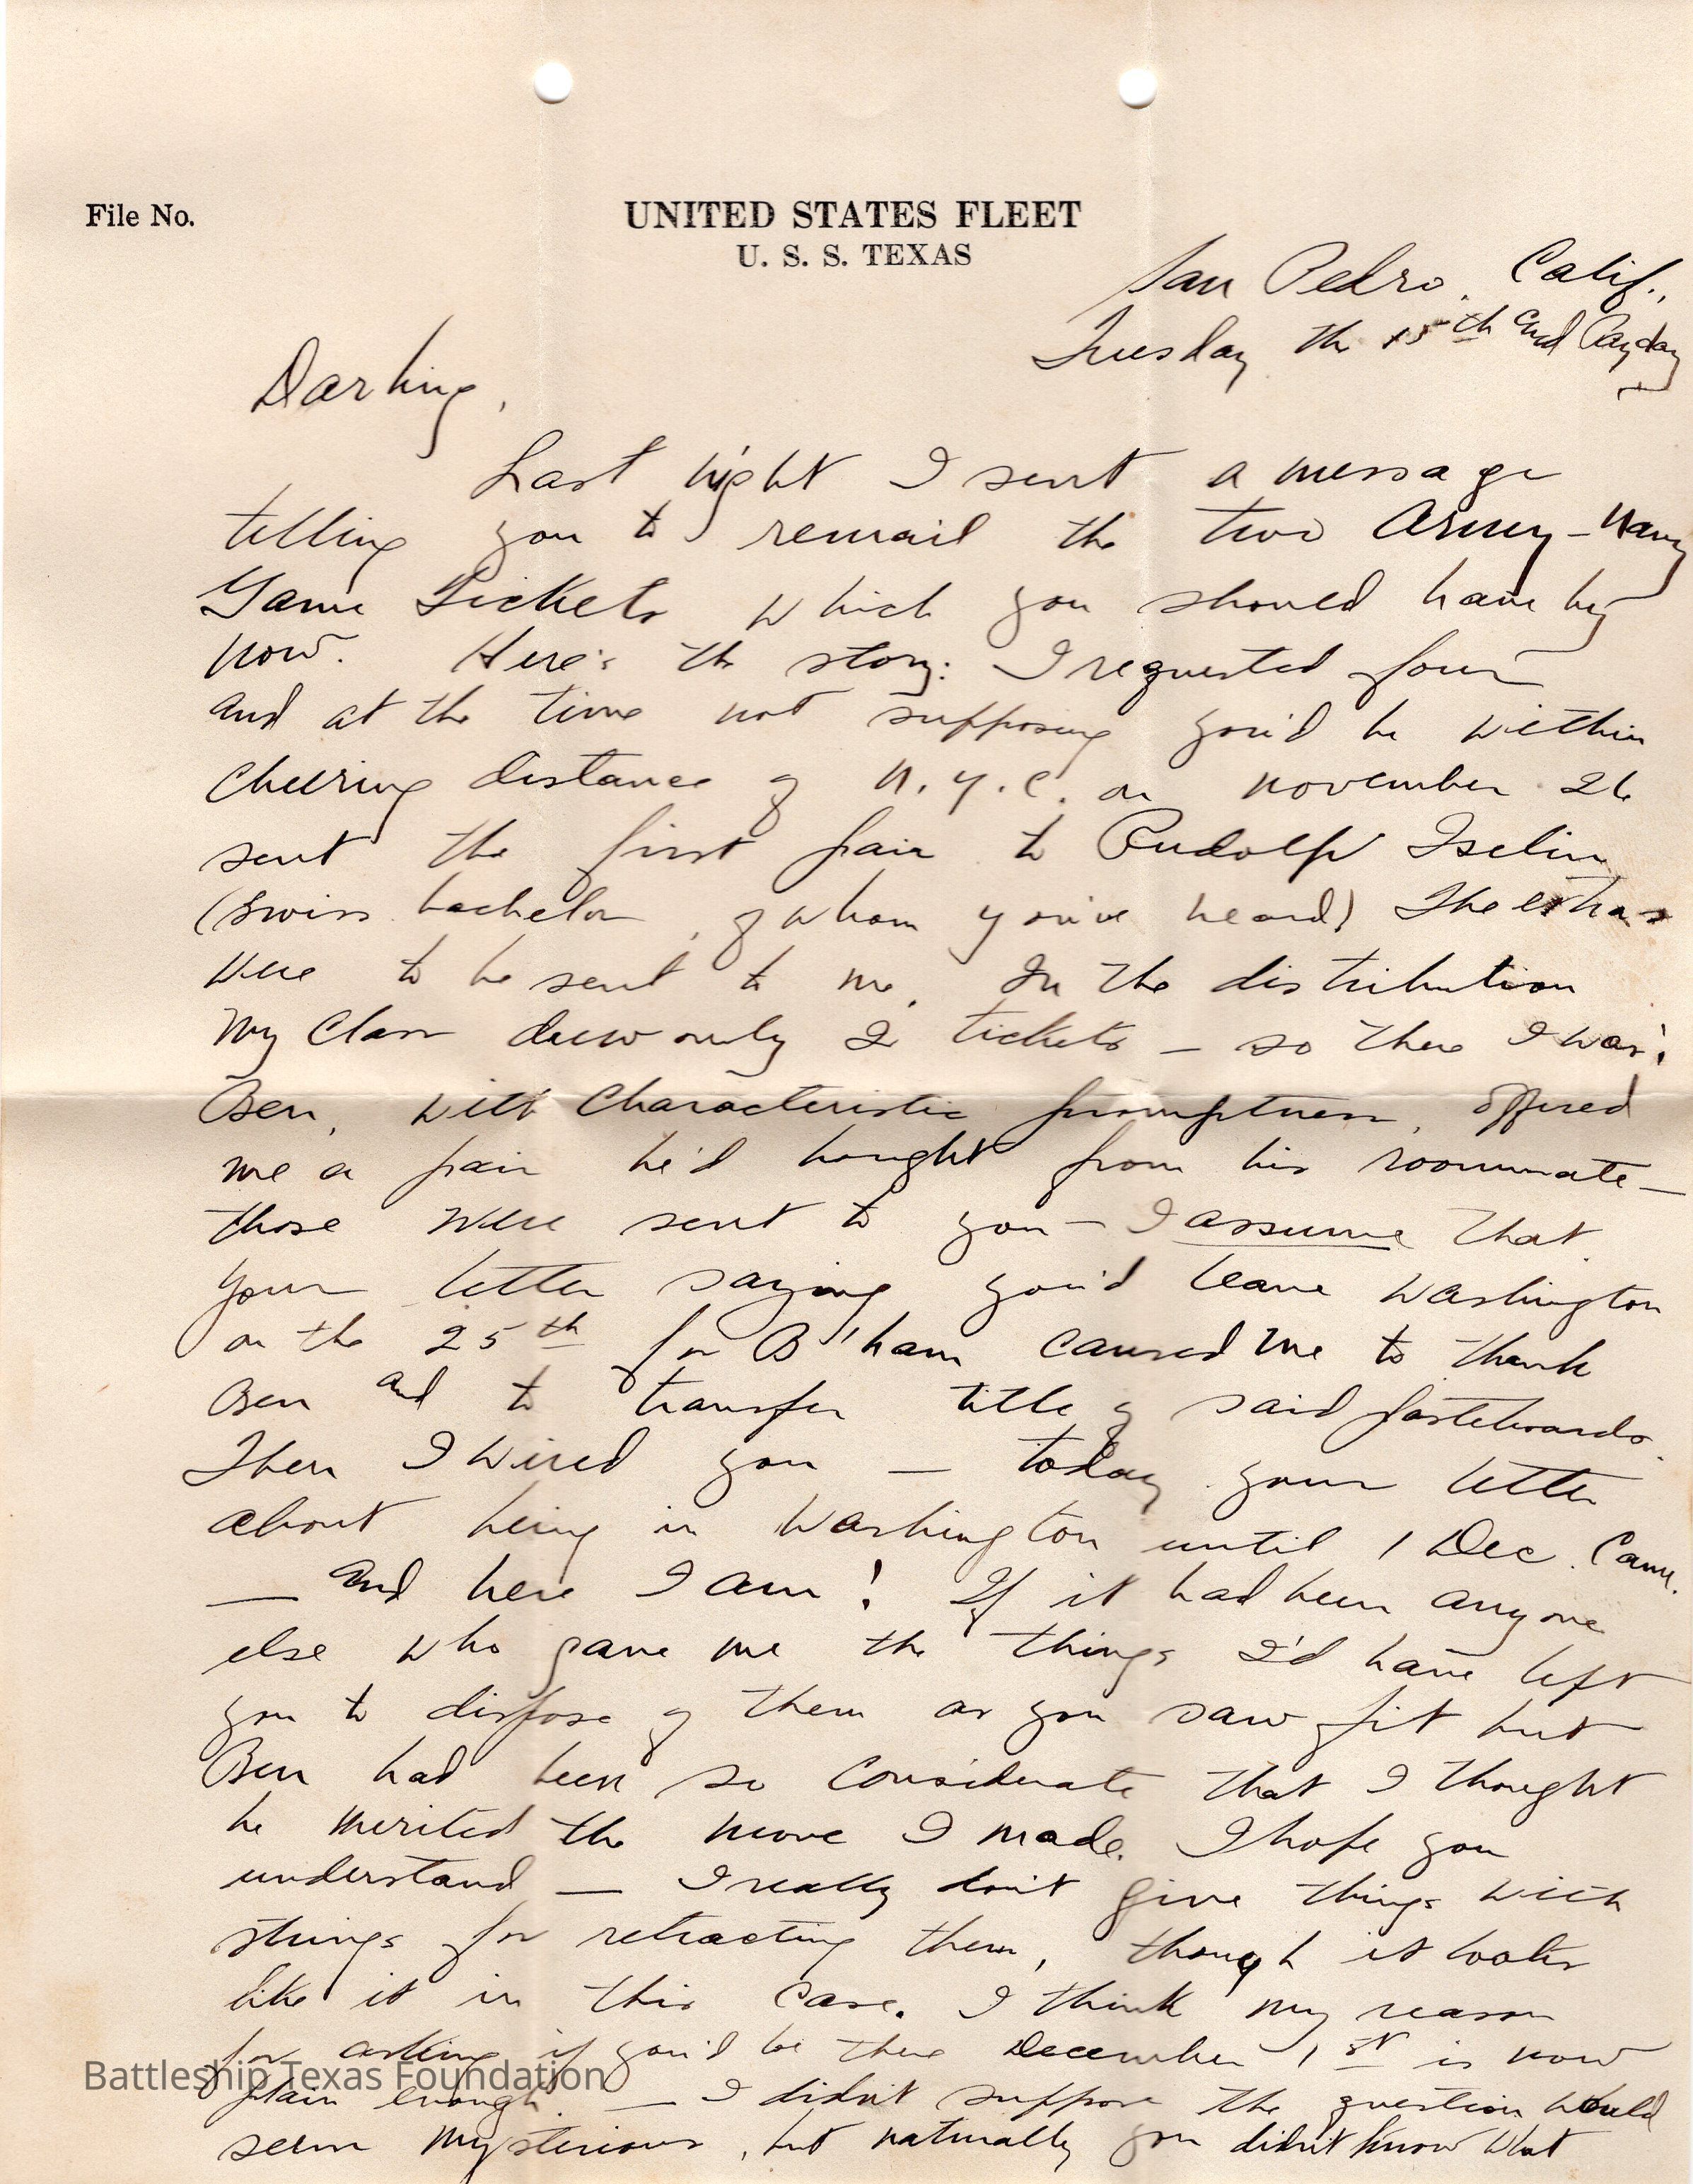 File No.
UNITED STATES FLEET
U. S. S. TEXAS
San Pedro, Calif.,
Tuesday the 15th and Payday
Darling,
Last night I sent a message
telling you to remail the two Army-Navy
Game Tickets which you should have by
now. Here's the story: I requested four
and at the time not supposing you'd be within
cheering distance of N.Y.C. on November 26
sent the first pair to Rudolph Iselin
(Swiss bachelor, of whom you've heard) The extras
were to be sent to me. In the distribution
my Class drew only 2 tickets — so there I was!
Ben, with characteristic promptness, offered
me a pair he'd bought from his roommate —
those were sent to you — I assume that
your letter saying you'd leave Washington
on the 25th for B'ham caused me to thank
Ben and to transfer title of said pasteboards.
Then I wired you — today your letter
about being in Washington until 1 Dec. Came.
— and here I am! If it had been anyone
else who gave me the things I'd have left
you to dispose of them as you saw fit but
Ben had been so considerate that I thought
he merited the move I made. I hope you
understand — I really don't give things with
strings for retracting them, though it looks
like it in this case. I think my reason
for asking if you'd be there December 1st is now
plain enough. — I didn't suppose the question would
seem mysterious, but naturally you didn't know what
Battleship Texas Foundation